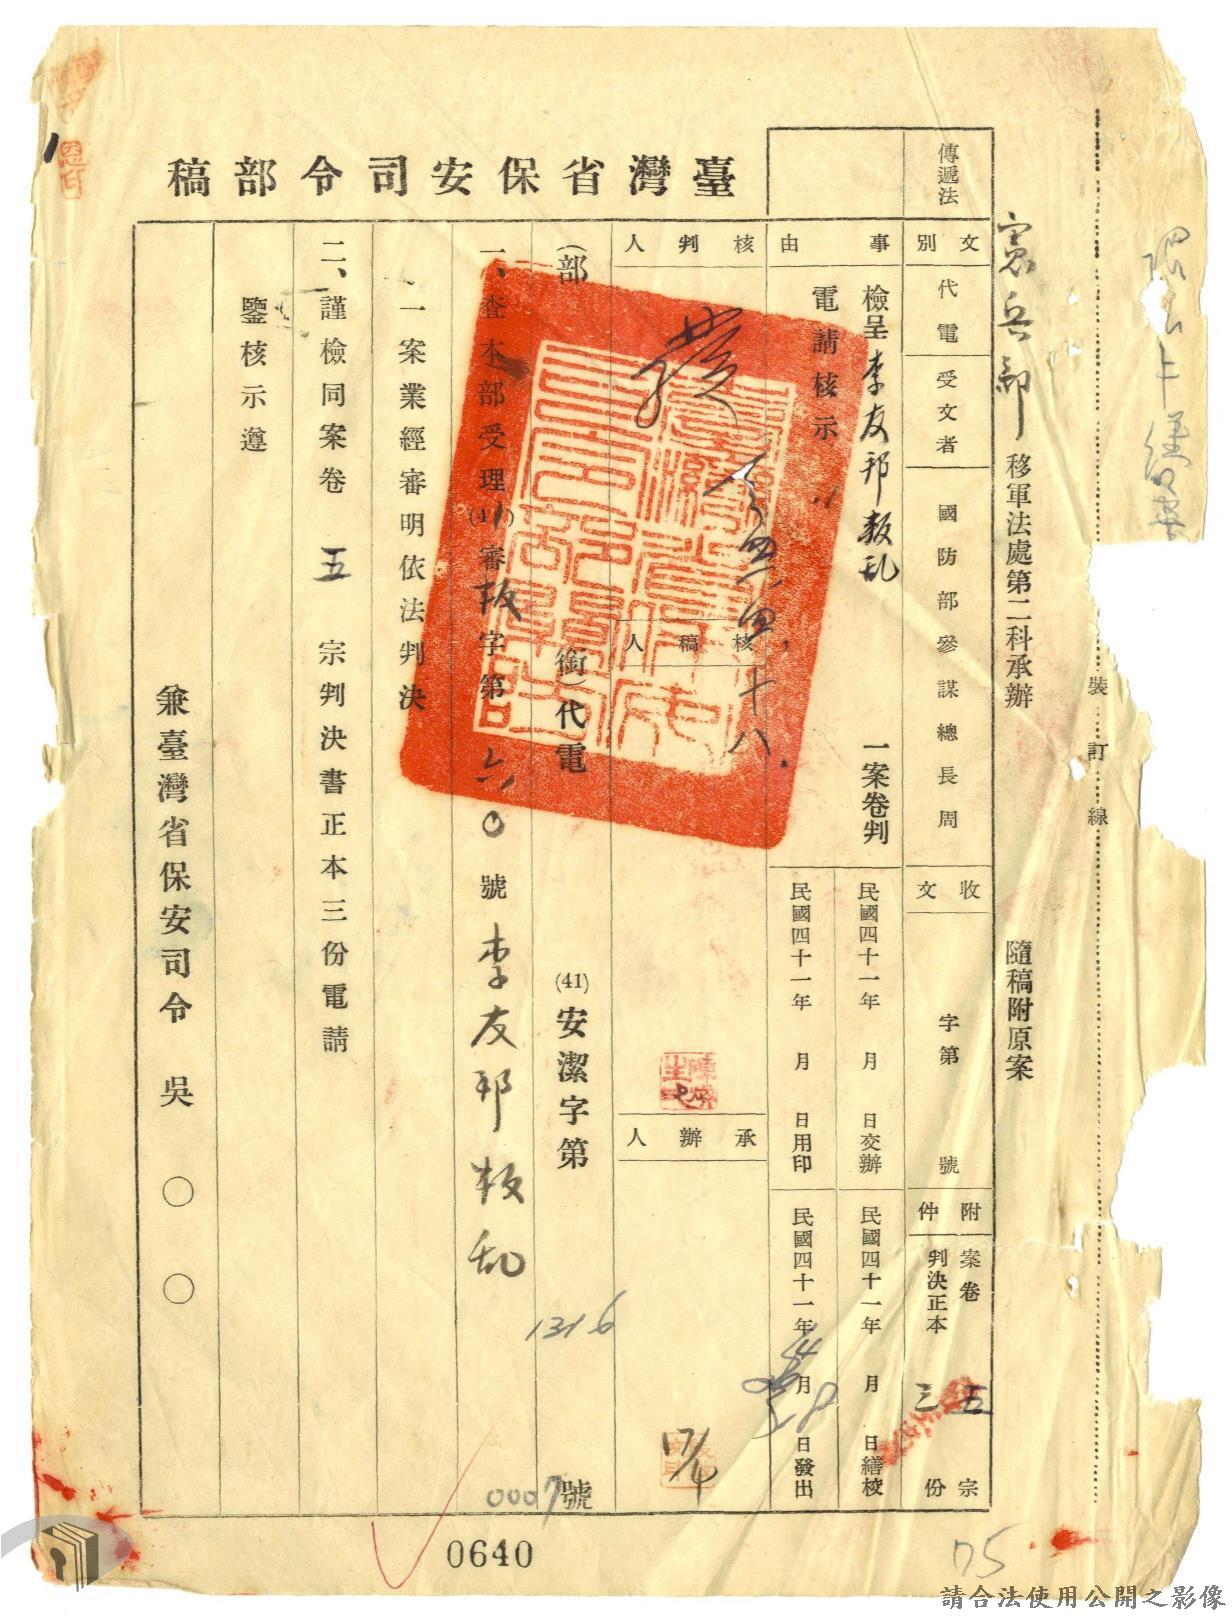 臺灣省保安司令部稿
憲兵部 移軍法處第二科承辦 隨稿附原案
裝訂線
傳遞法
文別 代電
受文者 國防部參謀總長周
收文 字第 號
附件 案卷 五 宗
判決正本 三 份
事由 檢呈李友邦叛乱一案卷判
電請核示
民國四十一年 月 日交辦
民國四十一年 月 日繕校
民國四十一年 月 日用印
民國四十一年 月 日發出
核判人
核稿人
承辦人
17/4
(部 銜)代電 (41)安潔字第 號
1316
0007
一、查本部受理(41)審叛字第六〇號李友邦叛乱
一案業經審明依法判決
二、謹檢同案卷 五 宗判決書正本三份電請
鑒核示遵
兼臺灣省保安司令 吳〇〇
0640
75
請合法使用公開之影像